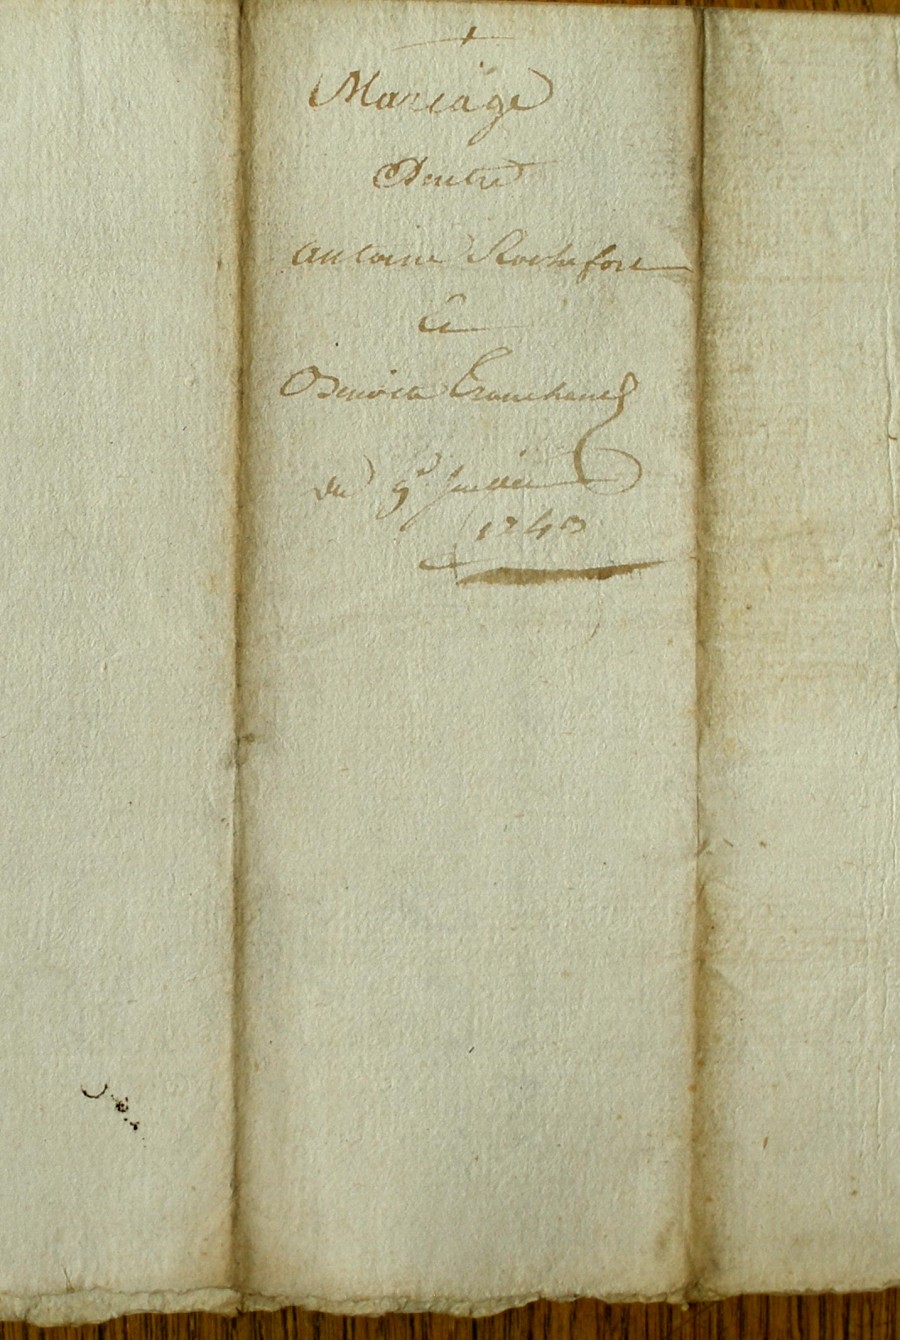 Mariage
Dentre
antoine Rochefort
&
Benoite Tranchand
du 9e Juillet
1743